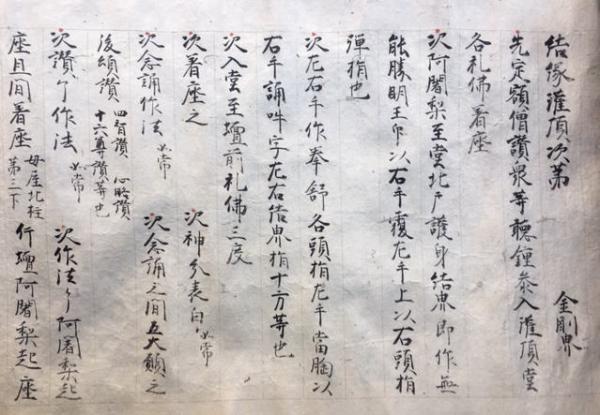 結縁灌頂次第 金剛界
先定額僧讃衆等聴鐘参入灌頂堂
各礼佛着座
次阿闍梨至堂北戸護身結界即作無
能勝明王印以右手覆左手上以右頭指
弾指也
次左右手作拳舒各頭指左手當胸以
右手誦吽字左右結界指十方等也
次入堂至壇前礼佛三度
次着座之 次神分表白 如常
次念誦作法 如常 次念誦之間五大願之
後頌讃 四智讃 心略讃 十六尊讃等也
次讃了作法 如常 次作法了阿闍梨起
座且間着座 母屋北柱第三下 行壇阿闍梨起座